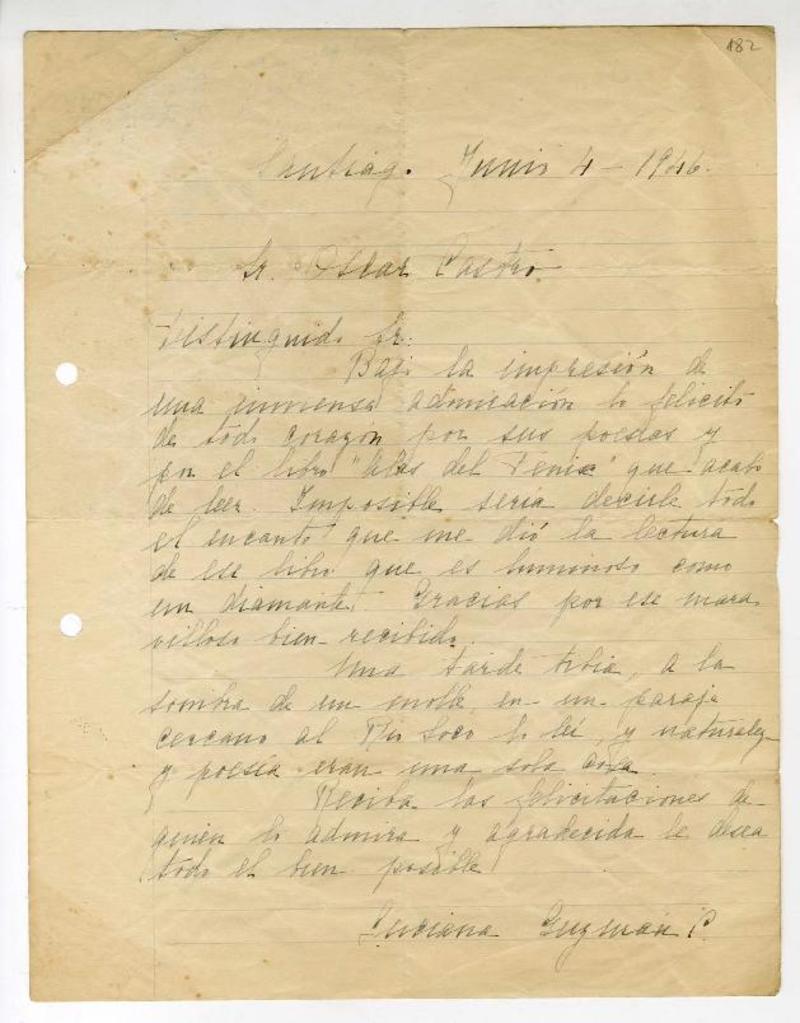 182
Santiago Junio 4 - 1946.
Sr. Oscar Castro
Distinguido Sr:
Bajo la impresión de
una inmensa admiración lo felicito
de todo corazón por sus poesias y
por el libro "Alas del Fenix" que acabo
de leer. Imposible seria decirle todo
el encanto que me dió la lectura
de ese libro que es luminoso como
un diamante. Gracias por ese mara
villoso bien recibido.
Una tarde tibia, a la
sombra de un molle, en un paraje
cercano al Rio Loco lo leí, y naturaleza
y poesía eran una sola cosa.
Reciba las felicitaciones de
quien lo admira y agradecida le desea
todo el bien posible
Luciana Guzmán P.